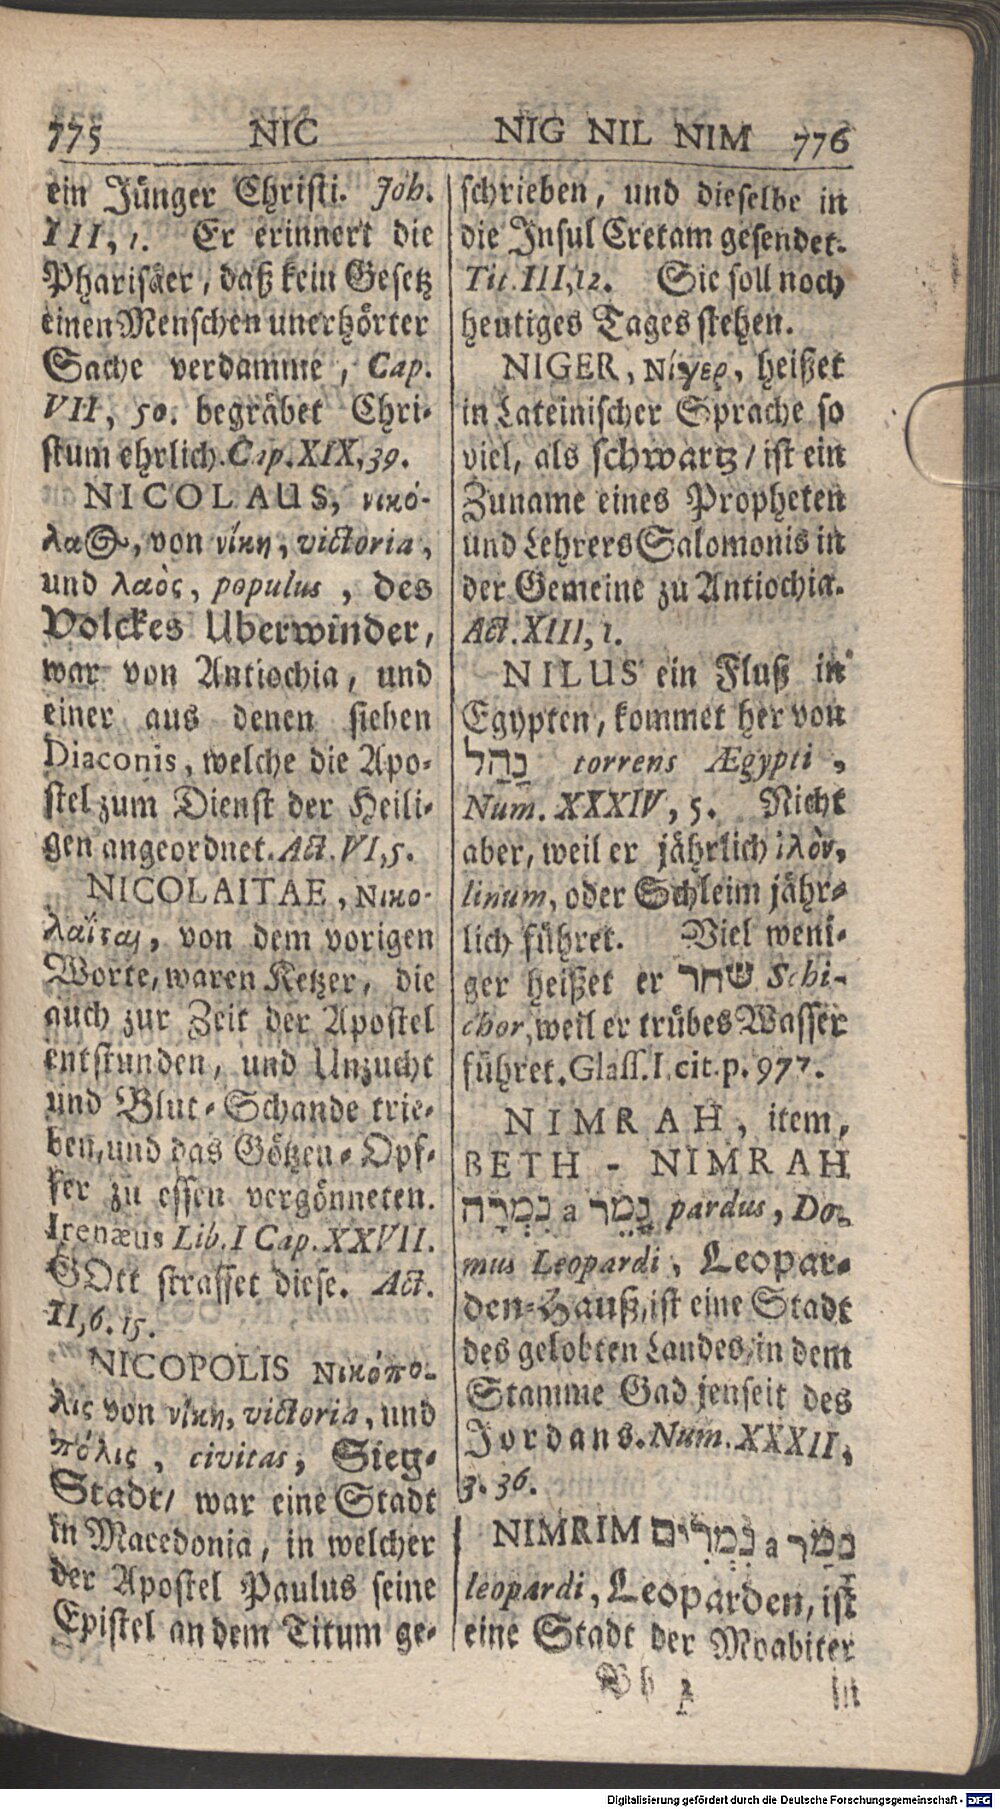 775 NIC
ein Jünger Christi. Joh.
III, 1. Er erinnert die
Pharisäer, daß kein Gesetz
einen Menschen unerhörter
Sache verdamme, Cap.
VII, 50. begräbet Chri-
stum ehrlich. Cap. XIX, 39.
NICOLAUS, νικό-
λαος, von νίκη, victoria,
und λαὸς, populus, des
Volckes Uberwinder,
war von Antiochia, und
einer aus denen sieben
Diaconis, welche die Apo-
stel zum Dienst der Heili-
gen angeordnet. Act. VI, 5.
NICOLAITAE, Νικο-
λαΐται, von dem vorigen
Worte, waren Ketzer, die
auch zur Zeit der Apostel
entstunden, und Unzucht
und Blut-Schande trie-
ben, und das Götzen-Opf-
fer zu essen vergönneten.
Irenæus Lib. I Cap. XXVII.
GOtt straffet diese. Act.
II, 6. 15.
NICOPOLIS Νικόπο-
λις von νίκη, victoria, und
πόλις, civitas, Sieg-
Stadt/ war eine Stadt
in Macedonia, in welcher
der Apostel Paulus seine
Epistel an dem Titum ge-
NIG NIL NIM 776
schrieben, und dieselbe in
die Insul Cretam gesendet.
Tit. III, 12. Sie soll noch
heutiges Tages stehen.
NIGER, Νίγερ, heißet
in Lateinischer Sprache so
viel, als schwartz/ ist ein
Zuname eines Propheten
und Lehrers Salomonis in
der Gemeine zu Antiochia.
Act. XIII, 1.
NILUS ein Fluß in
Egypten, kommet her von
נַחַל torrens Ægypti,
Num. XXXIV, 5. Nicht
aber, weil er jährlich ἰλὸν,
linum, oder Schleim jähr-
lich führet. Viel weni-
ger heißet er שחר Schi-
chor, weil er trübes Wasser
führet. Glass. l. cit. p. 977.
NIMRAH, item,
BETH - NIMRAH
נִמְרָה a נָמֵר pardus, Do-
mus Leopardi, Leopar-
den-Hauß, ist eine Stadt
des gelobten Landes, in dem
Stamme Gad jenseit des
Jordans. Num. XXXII,
3. 36.
NIMRIM נִמְרִים a נָמֵר
leopardi, Leoparden, ist
eine Stadt der Moabiter
Bb 2 in
Digitalisierung gefördert durch die Deutsche Forschungsgemeinschaft - DFG